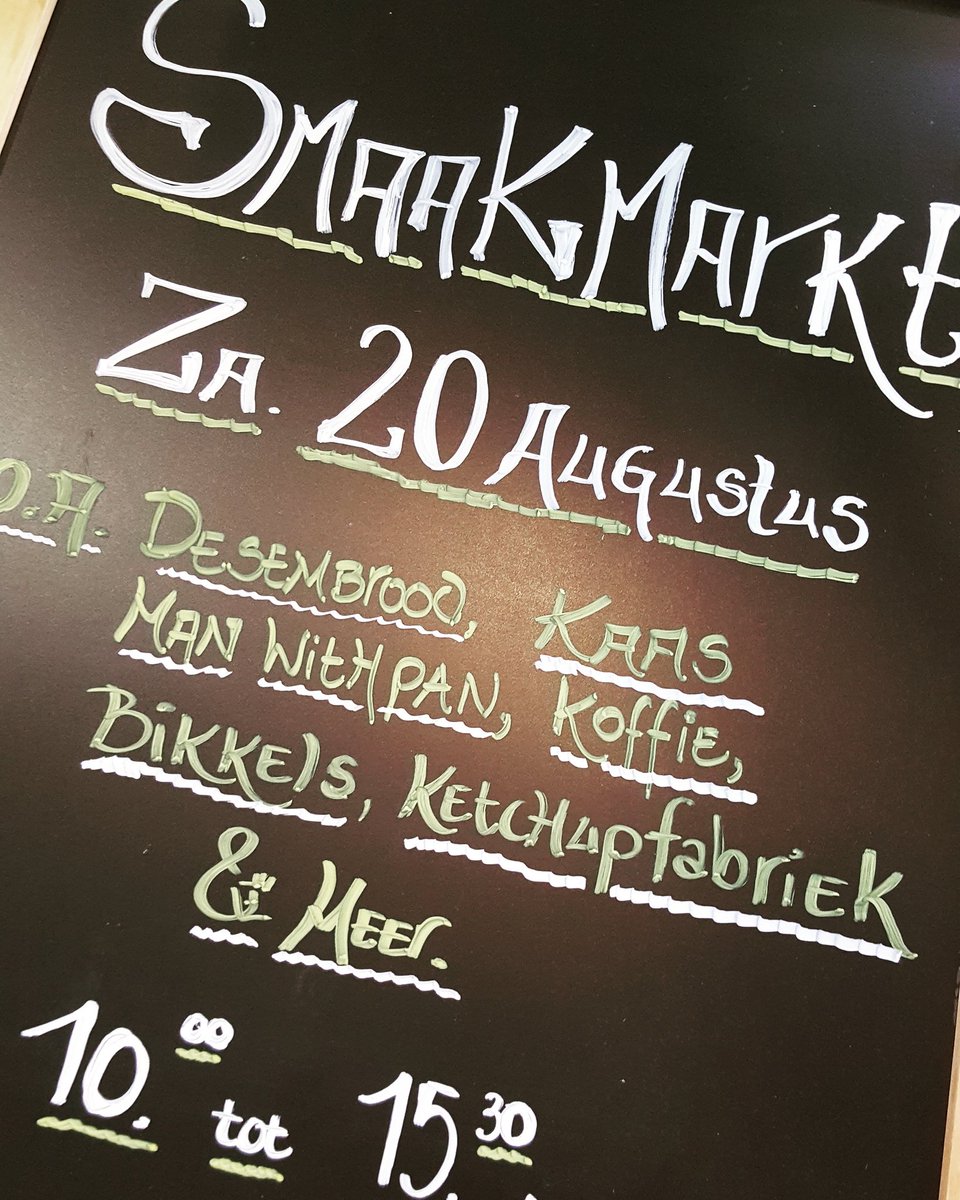 SMAAKMARKt
ZA. 20 AUGUSTUS
O.A. DESEMBROOD, KAAS
MAN WITH PAN, KOFFIE,
BIKKELS, KETCHUPFABRIEK
& MEER.
10.00 tot 15.30